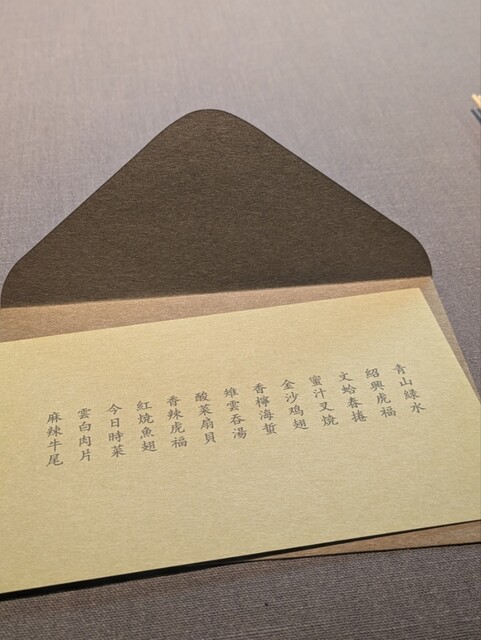 青山綠水
紹興虎福
文蛤春捲
蜜汁叉燒
金沙鸡翅
香檸海蜇
維雲吞湯
酸菜扇貝
香辣虎福
紅燒魚翅
今日時菜
雲白肉片
麻辣牛尾